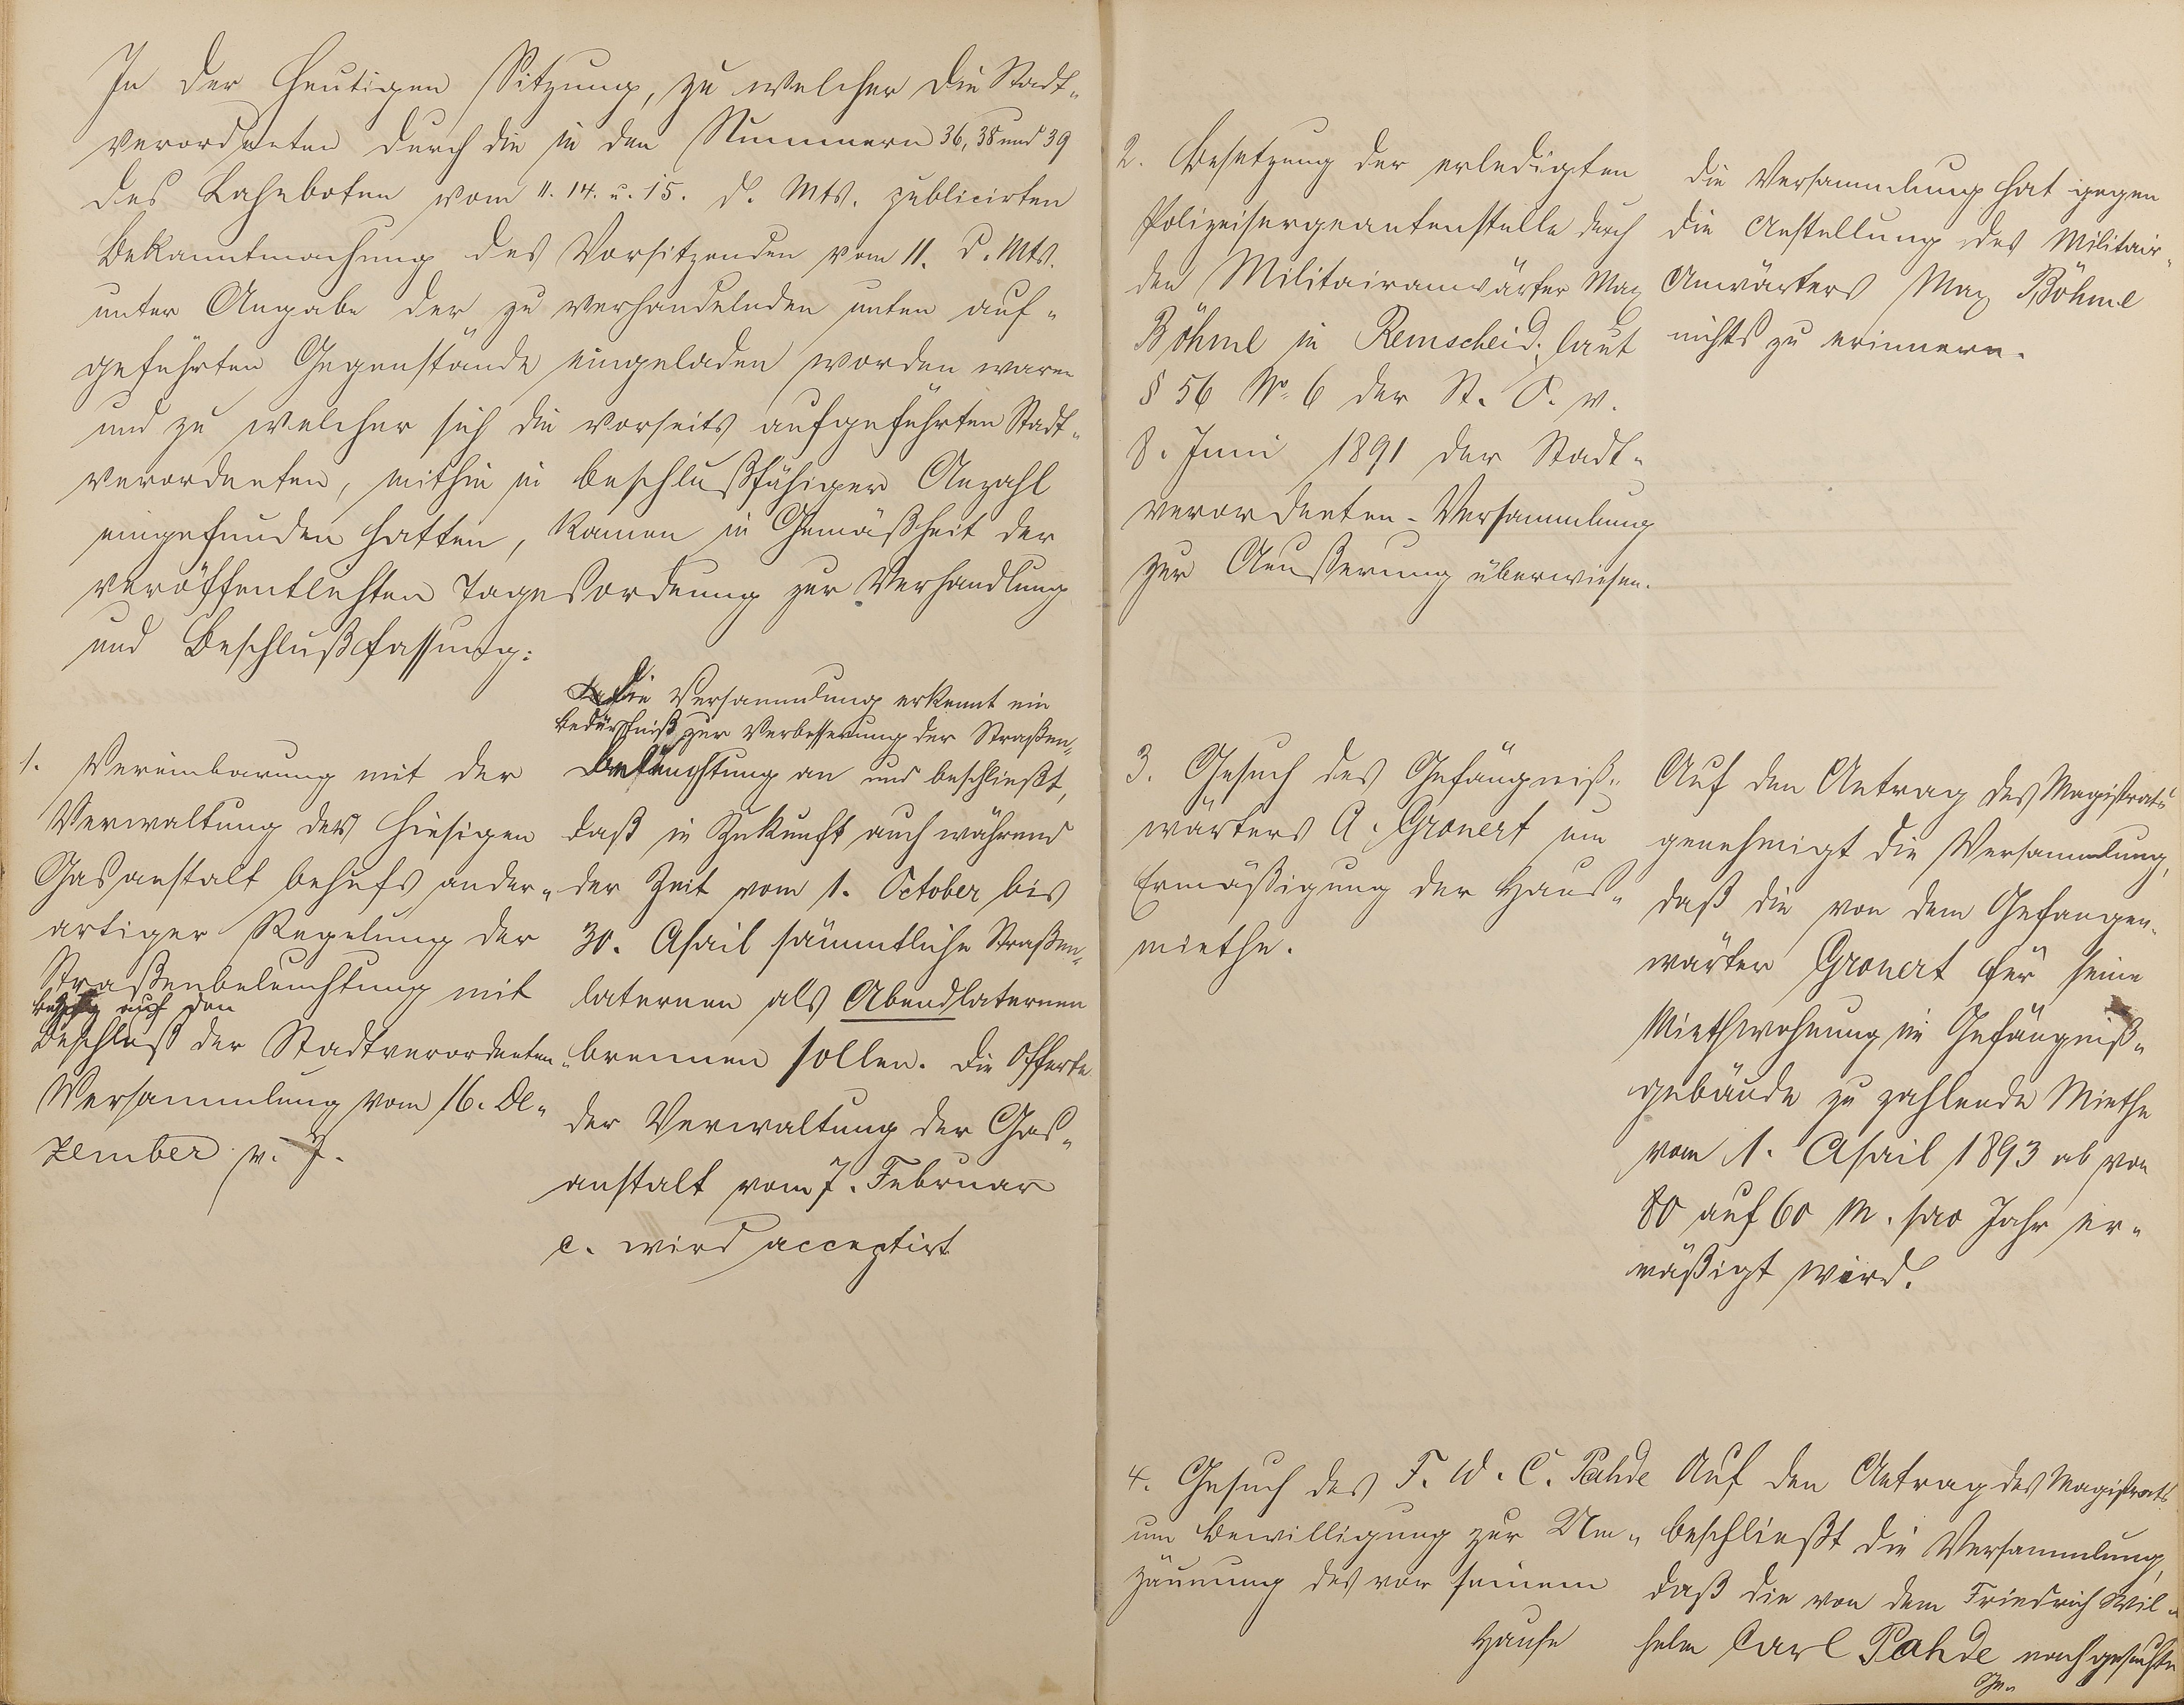 In der heutigen Sitzung, zu welcher die Stadt-
verordneten durch die in den Nummern 36, 38 und 39
des Lahnboten vom 11. 14. u. 15. d. Mts. publicirten
Bekanntmachung des Vorsitzenden vom 11. d. Mts.
unter Angabe der zu verhandelnden unten auf-
geführten Gegenstände eingeladen worden waren
und zu welcher sich die vorseits aufgeführten Stadt-
verordneten, mithin in beschlußfähiger Anzahl
eingefunden hatten, kamen in Gemäßheit der
veröffentlichten Tagesordnung zur Verhandlung
und Beschlußfassung:
1. Vereinbarung mit der
Verwaltung der hiesigen
Gasanstalt behufs ander-
artiger Regelung der
Straßenbeleuchtung mit
Bezug auf den
Beschluß der Stadtverordneten-
Versammlung vom 16. De-
zember v. J.
Die Versammlung erkennt ein
Bedürfniß zur Verbesserung der Straßen-
Beleuchtung an und beschließt,
daß in Zukunft auch während
der Zeit vom 1. October bis
30. April sämmtliche Straßen-
laternen als Abendlaternen
brennen sollen. Die Offerte
der Verwaltung der Gas-
anstalt vom 7. Februar
c. wird acceptirt
2. Besetzung der erledigten
Polizeisergeantenstelle durch
den Militairanwärter Max
Böhme in Remscheid; laut
§ 56 No. 6 der St. O. v.
8. Juni 1891 der Stadt-
verordneten-Versammlung
zur Aeußerung überwiesen.
Die Versammlung hat gegen
die Anstellung des Militair-
Anwärters Max Böhme
nichts zu erinnern.
3. Gesuch des Gefängniß-
wärters A. Gronert um
Ermäßigung der Haus-
miethe.
Auf den Antrag des Magistrats
genehmigt die Versammlung,
daß die von dem Gefangen-
wärter Gronert für seine
Miethwohnung im Gefängniß-
gebäude zu zahlende Miethe
vom 1. April 1893 ab von
80 auf 60 M. pro Jahr er-
mäßigt wird.
4. Gesuch des F. W. C. Pahde
um Bewilligung zur Um-
zäunung des vor seinem
Hause
Auf den Antrag des Magistrats
beschließt die Versammlung,
daß die von dem Friedrich Wil-
helm Carl Pahde nachgesuchte
Ge-